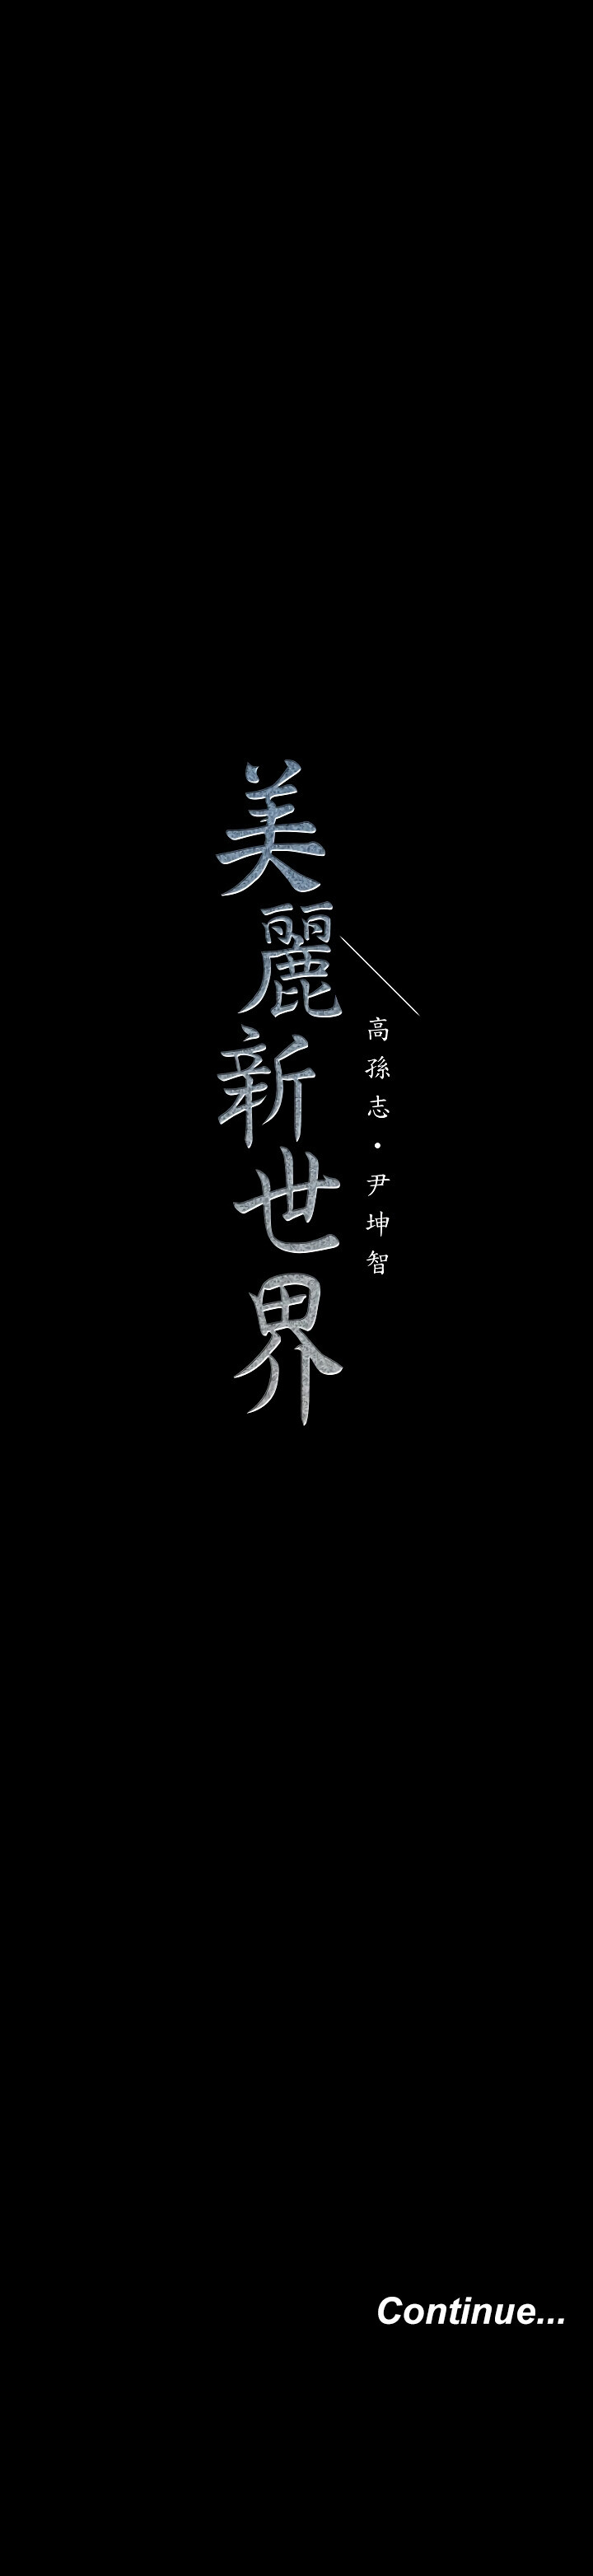 美麗新世界
高孫志・尹坤智
Continue...